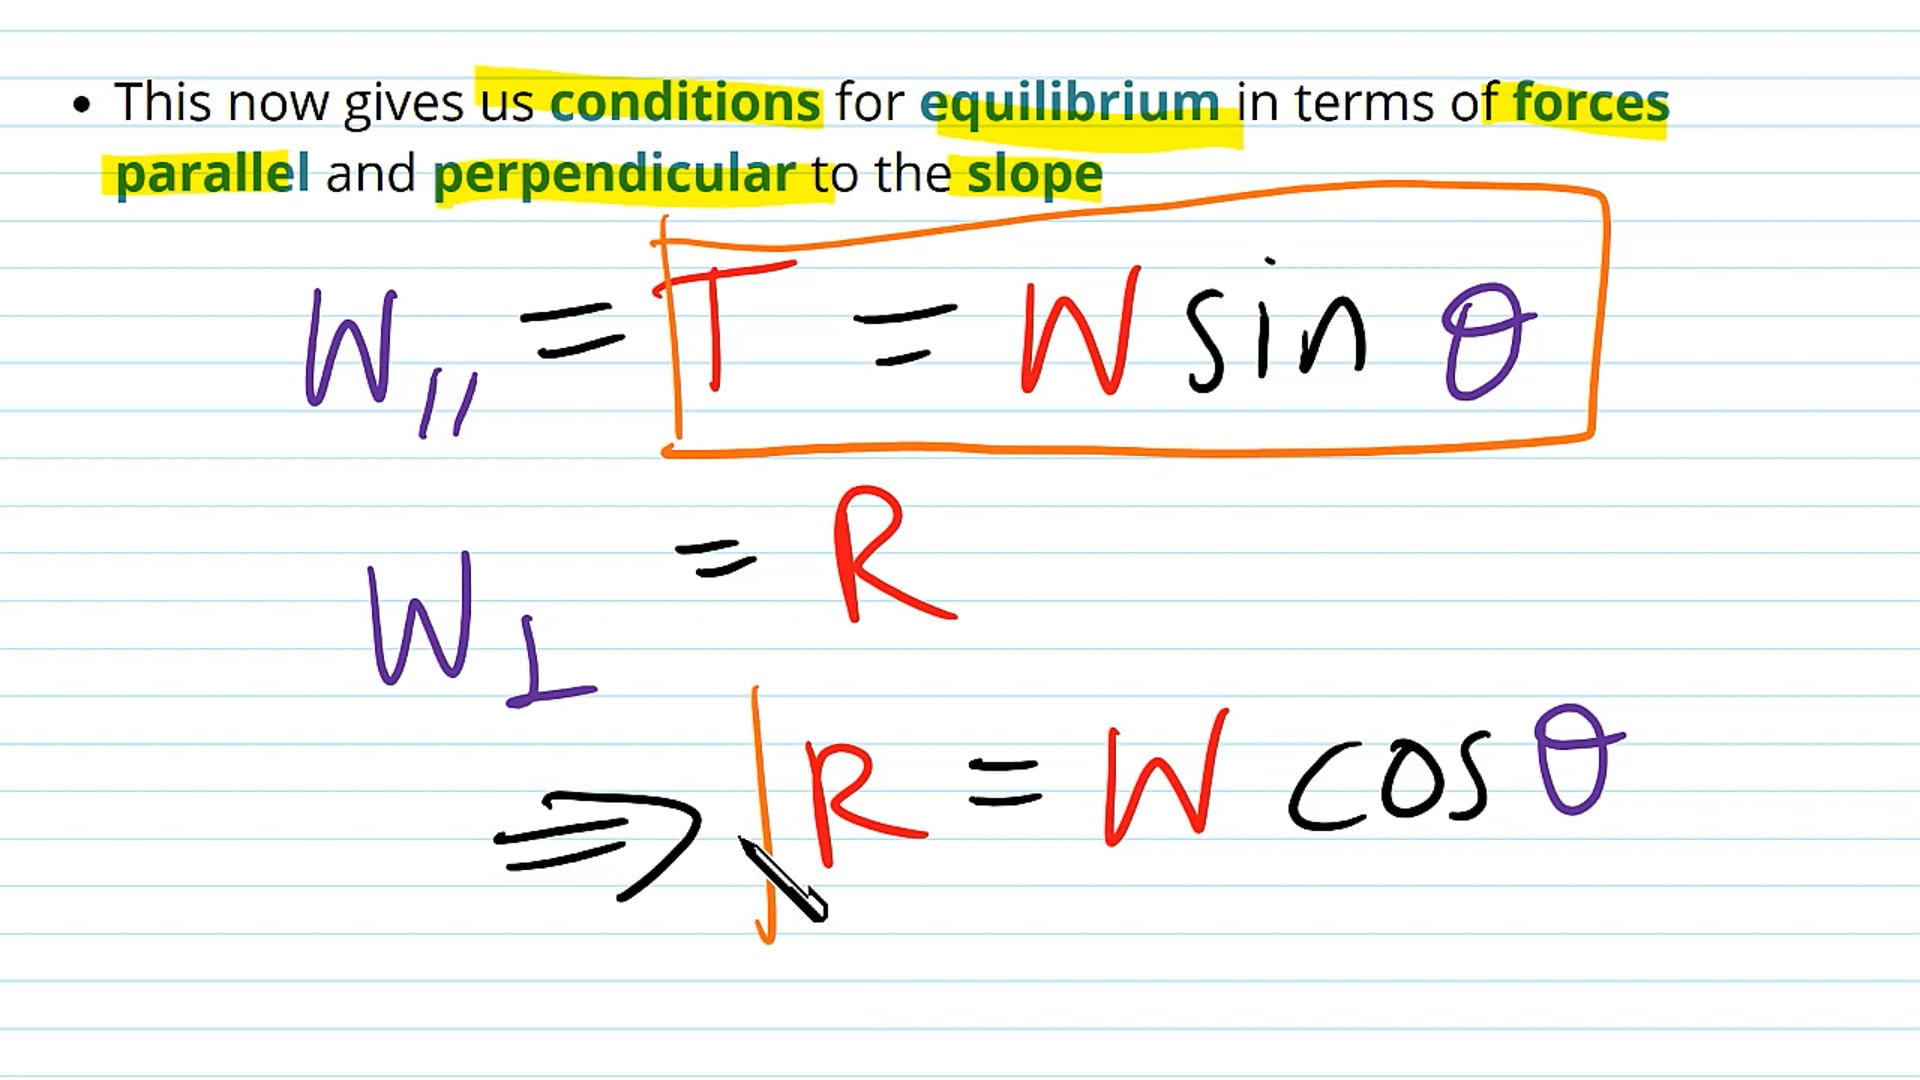 • This now gives us conditions for equilibrium in terms of forces
parallel and perpendicular to the slope
W// = T = W sin θ
W⊥ = R
⇒ R = W cos θ